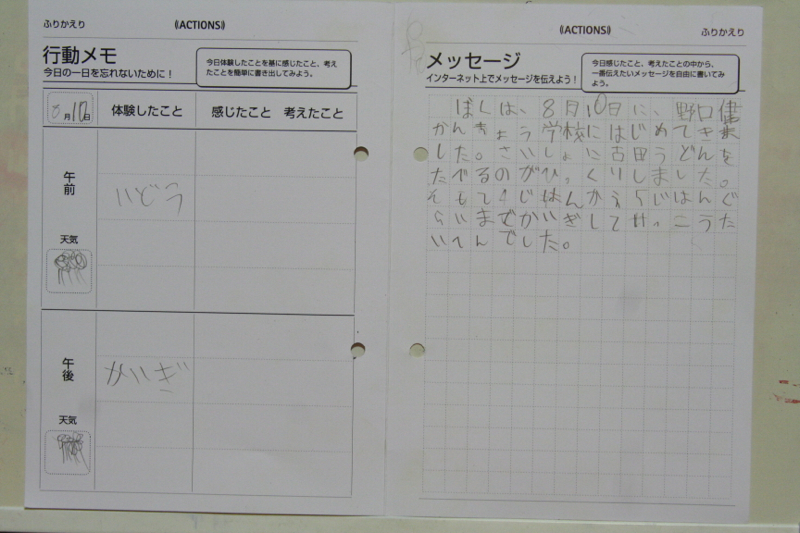 ふりかえり
《ACTIONS》
行動メモ
今日の一日を忘れないために！
今日体験したことを基に感じたこと、考え
たことを簡単に書き出してみよう。
8月10日
体験したこと
感じたこと 考えたこと
午前
いどう
天気
午後
かいぎ
天気
《ACTIONS》
ふりかえり
メッセージ
インターネット上でメッセージを伝えよう！
今日感じたこと、考えたことの中から、
一番伝えたいメッセージを自由に書いてみ
よう。
ぼくは、8月10日に、野口健
かんきょう学校にはじめてき来
した。さいしょに吉田うどんを
たべるのがびっくりしました。
そして4じはんから5じはんぐ
らいまでかいぎしてけっこうた
いへんでした。